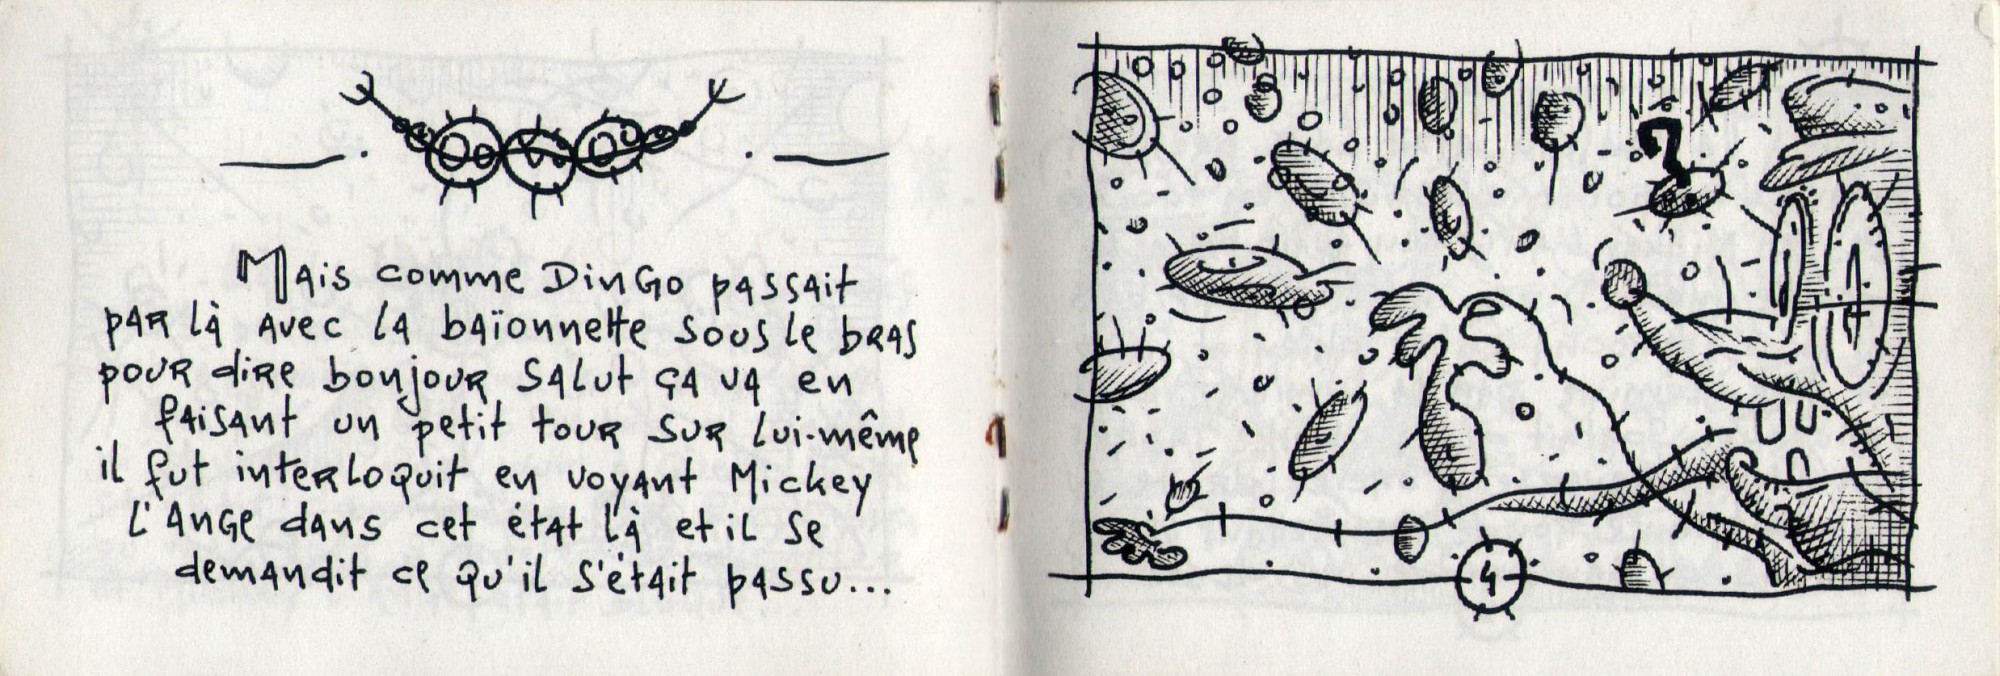 Mais comme Dingo passait
par là avec la baïonnette sous le bras
pour dire bonjour salut ça va en
faisant un petit tour sur lui-même
il fut interloquit en voyant Mickey
l'Ange dans cet état là et il se
demandit ce qu'il s'était passu...
?
4